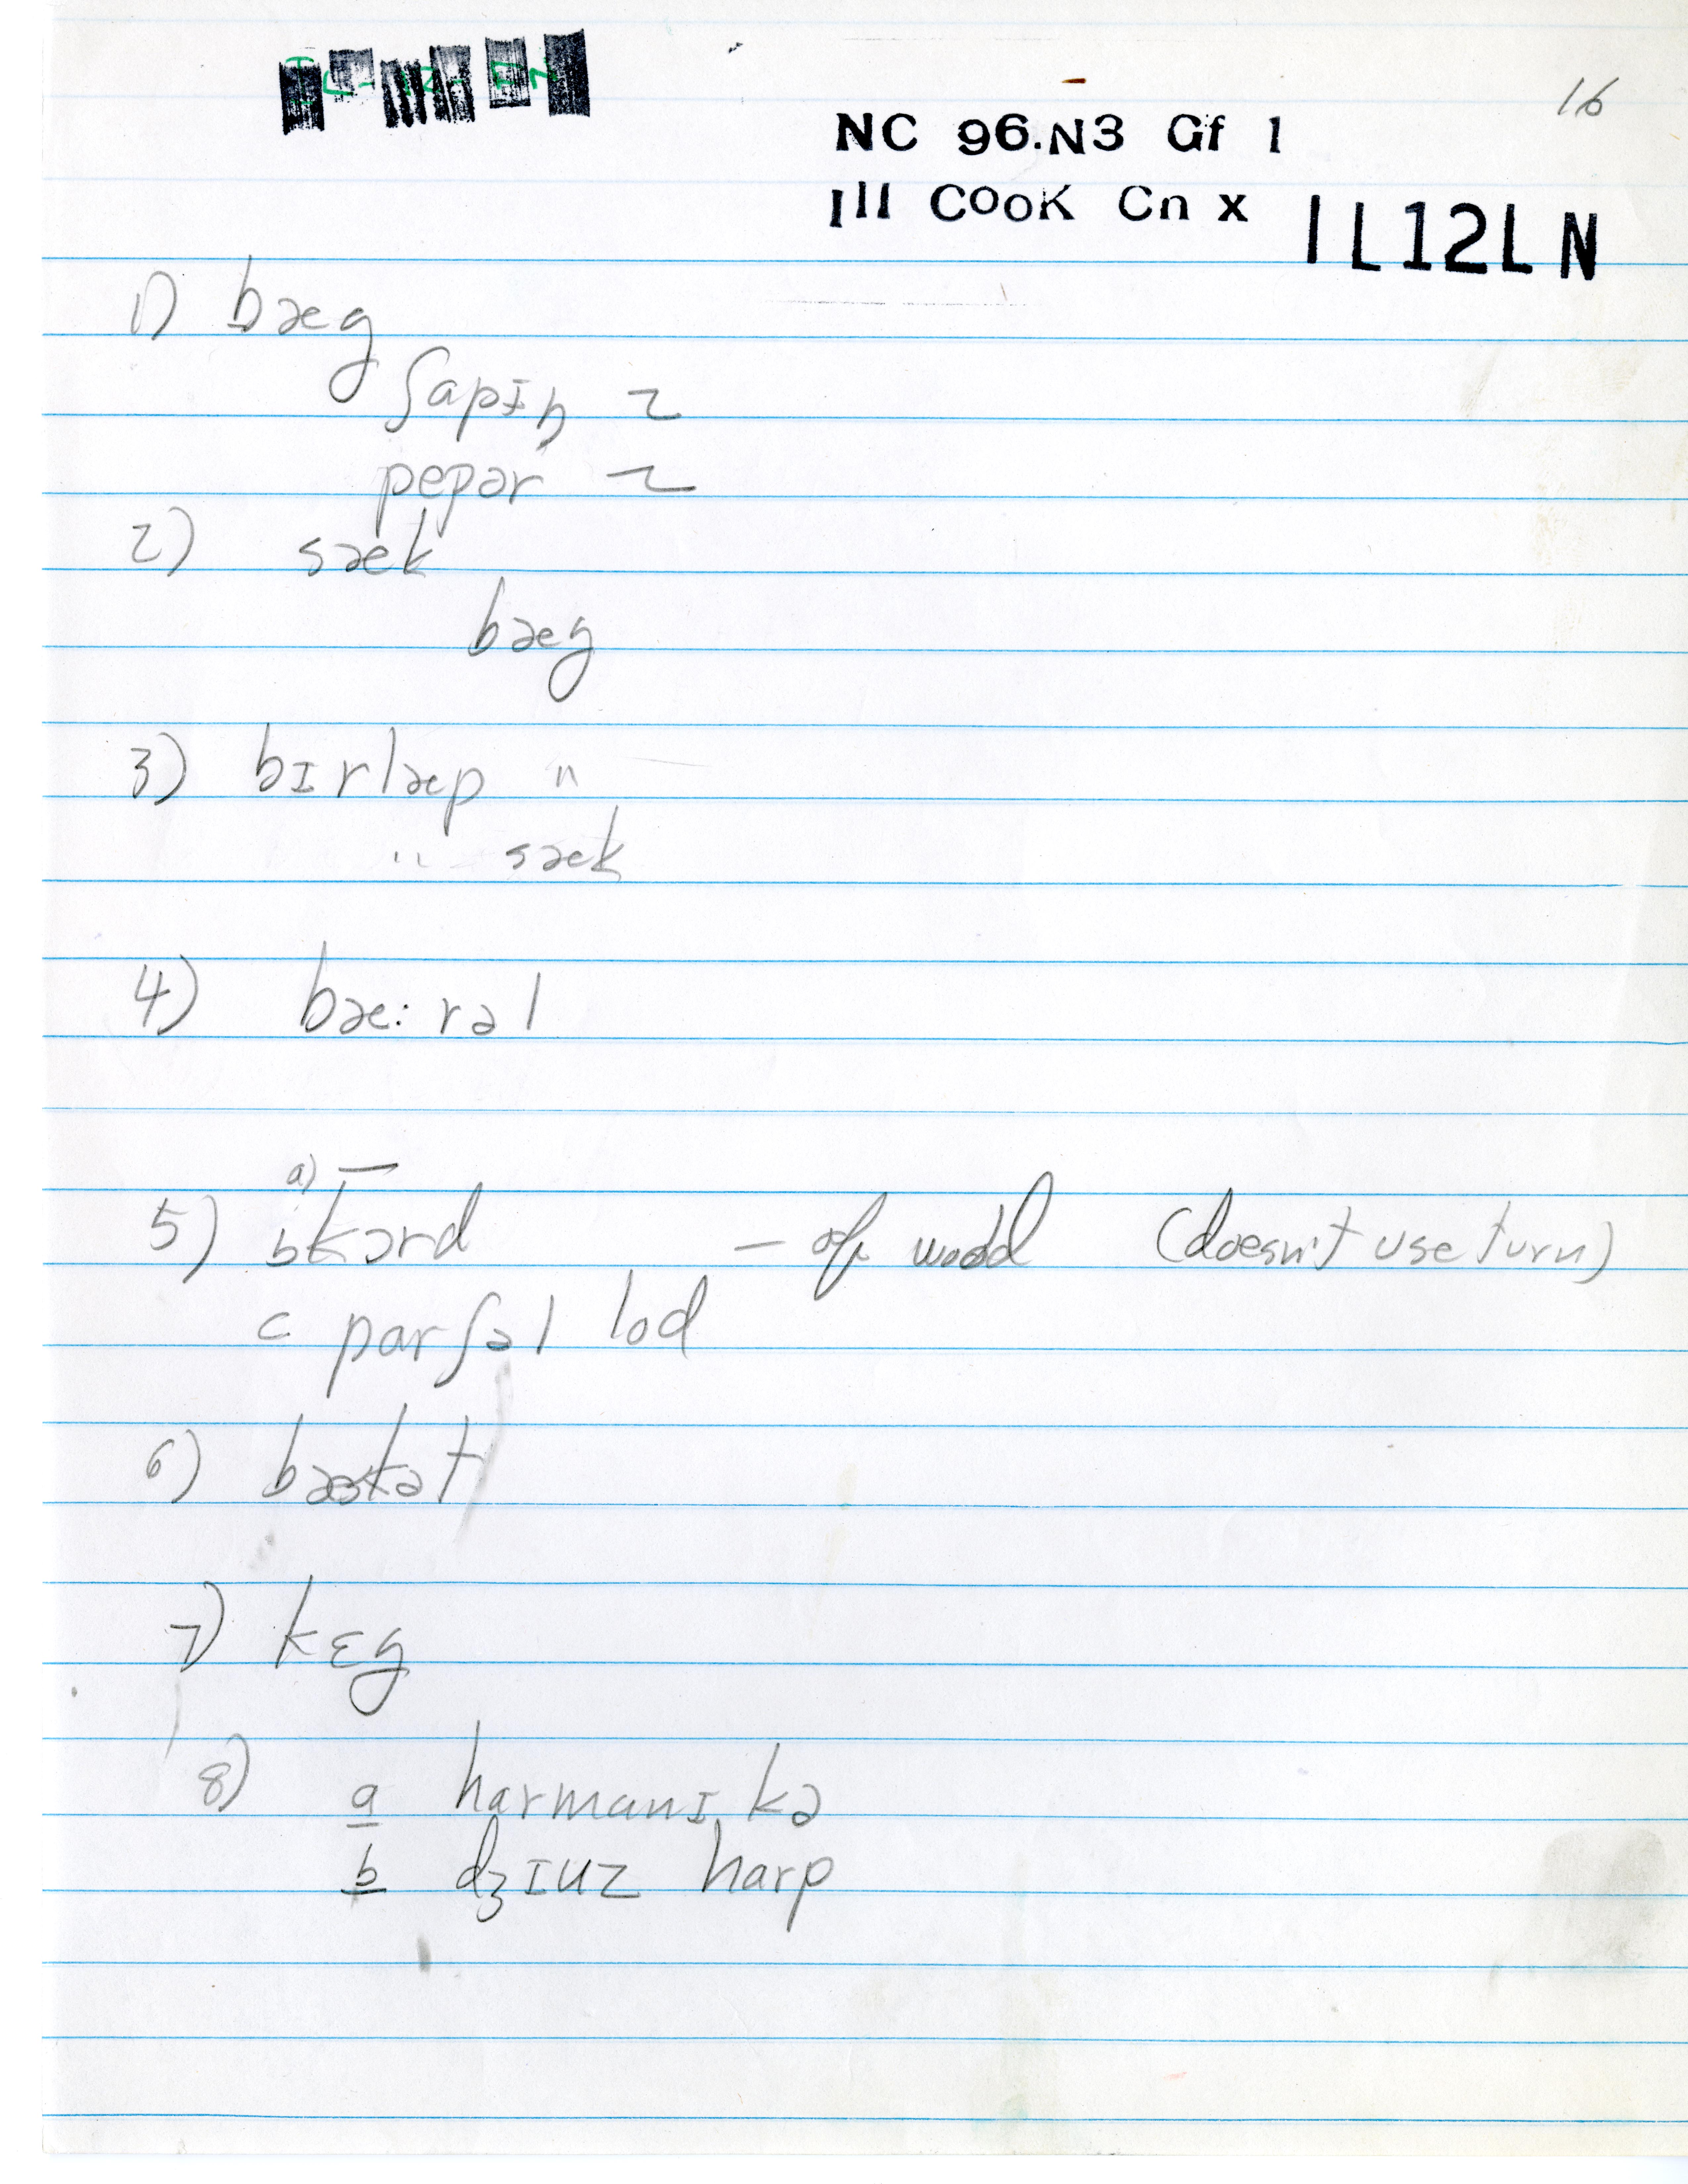 16
NC 96.N3 Gf 1
Ill COOK Cn x IL12LN
1) bæg
ʃapɪŋ ~
pepər ~
2) sæk
bæg
3) bɪrlæp "
" sæk
4) bæ:rəl
a) —
5) b kɔrd — of wood (doesn't use turn)
c parʃəl lod
6) bæskət
7) kɛg
8) a harmanɪkə
b dʒɪuz harp